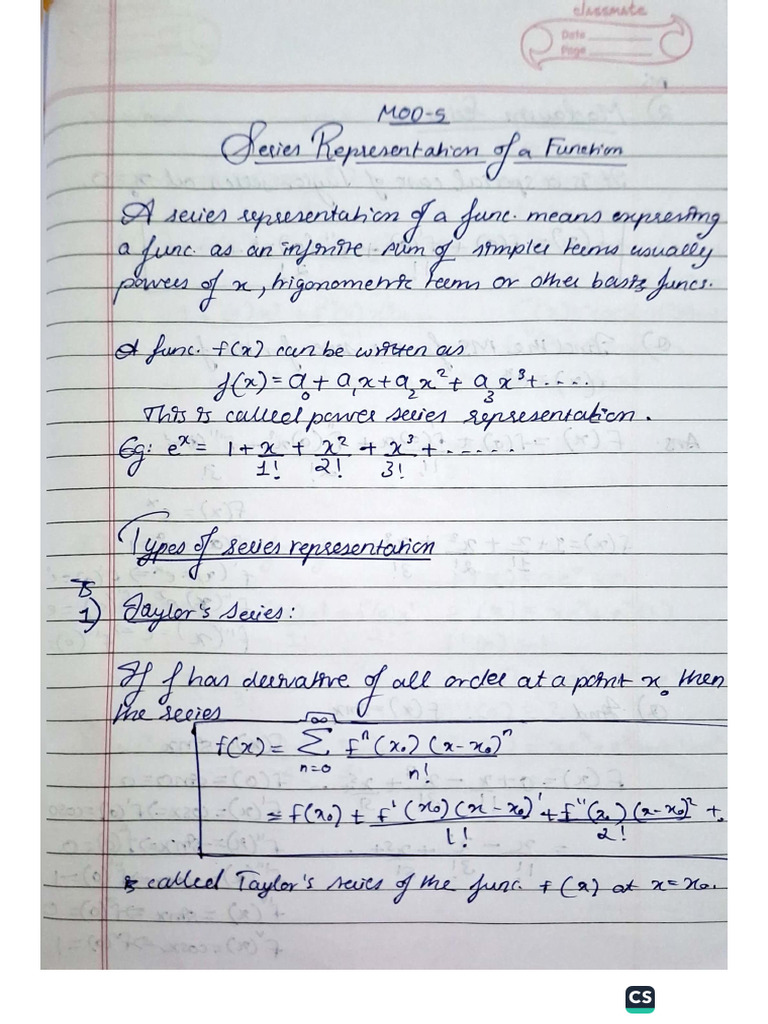 classmate
Date
Page
MOD-5
Series Representation of a Function
A series representation of a func. means expressing
a func. as an infinite sum of simpler terms usually
powers of x, trigonometric terms or other basis funcs.
A func. f(x) can be written as
f(x) = a₀ + a₁x + a₂x² + a₃x³ + ....
This is called power series representation.
Eg: eˣ = 1 + x/1! + x²/2! + x³/3! + ......
Types of series representation
1) Taylor's Series:
If f has derivative of all order at a point x₀ then
the series
f(x) = ∞Σn=0 fⁿ(x₀)(x-x₀)ⁿ/n!
= f(x₀) + f'(x₀)(x-x₀)'/1! + f''(x₀)(x-x₀)²/2! + .
is called Taylor's series of the func. f(x) at x=x₀.
CS